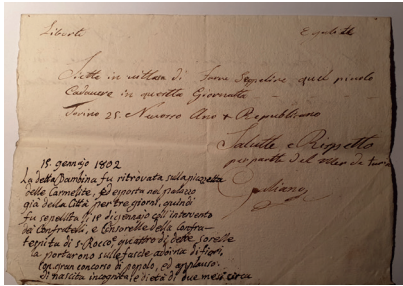 Libertà Egalità
Siette in vittasa di farne Sepelire quel picolo
Cadavere in questta Giornatta
Torino 25 Nevoso Ano X Republicano
Salutte e Rispetto
per parte del
15. gennajo 1802
La detta Bambina fu ritrovata sulla piazzetta
delle Carmelite, ed esposta nel palazzo
già della Città per tre giorni, quindi
fu sepellita li 15 di gennajo coll' intervento
dei Confratelli, e Consorelle della Confra-
ternita di S. Rocco e quattro di dette sorelle
la portarono sulle fascie adorna di fiori,
con gran concorso di popolo, ed applauso.
di nascita incognita, e di età di due mesi circa